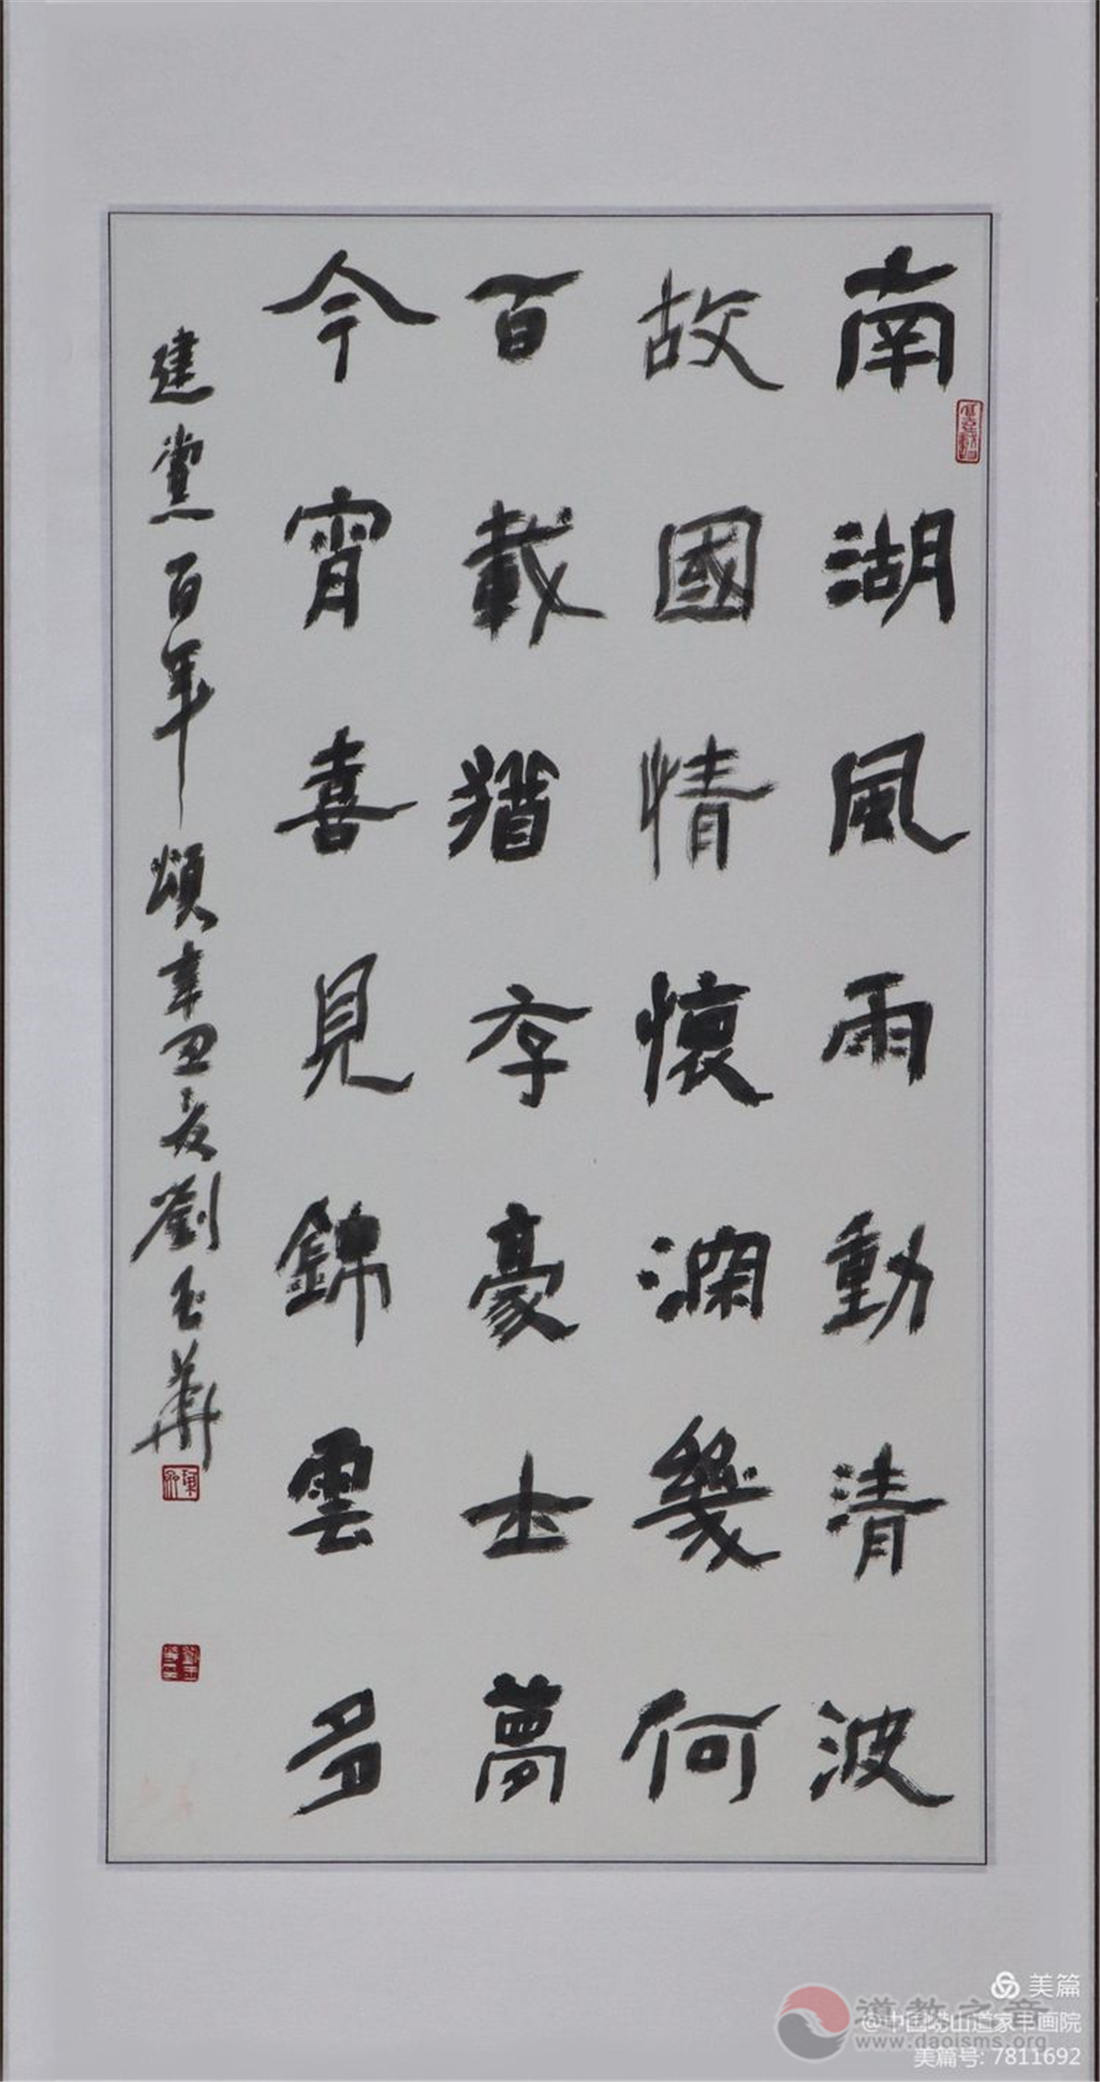 南湖風雨動清波
故國情懷瀾幾何
百載猶存豪士夢
今宵喜見錦雲多
建黨百年頌辛丑夏劉玉華
美篇
道教之音
@中国崂山道家书画院
www.daoisms.org
美篇号: 7811692